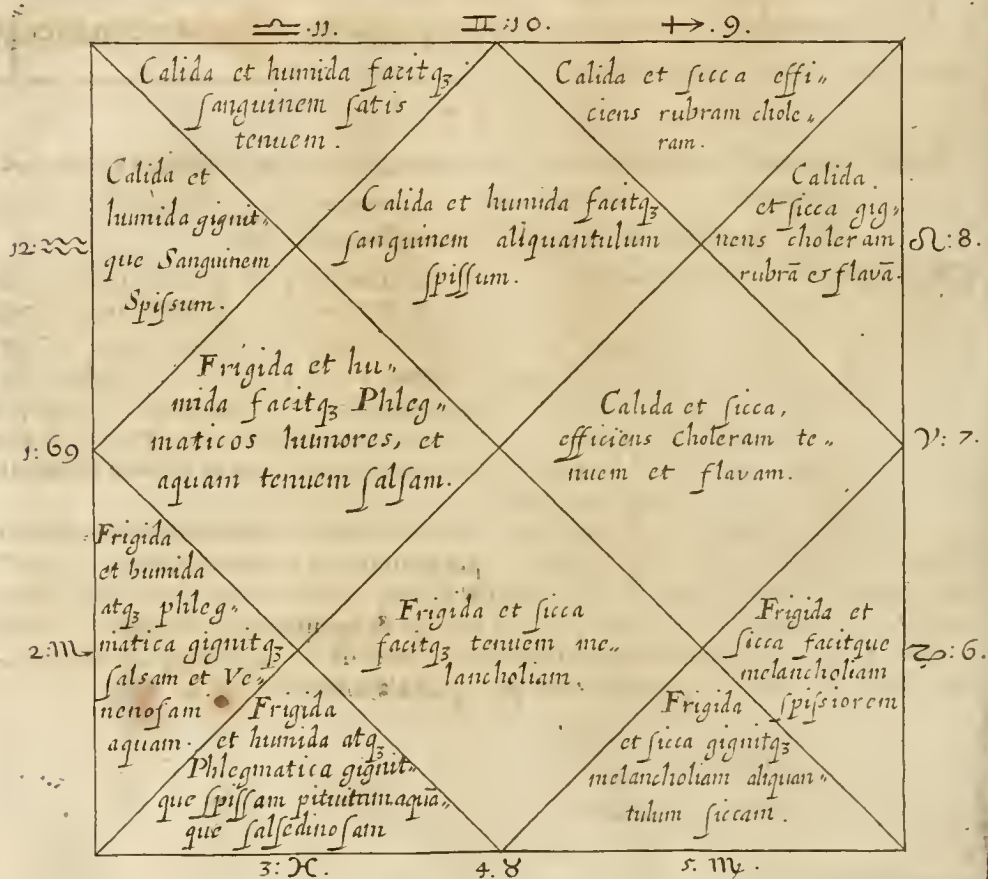 ♎.11.
♊:10.
♐.9.
Calida et humida facitqꝫ
ſanguinem ſatis
tenuem.
Calida et ſicca effi„
ciens rubram chole„
ram.
Calida et
humida gignit„
que Sanguinem
Spiſſum.
12:♒
Calida et humida facitqꝫ
ſanguinem aliquantulum
ſpiſſum.
Calida.
et ſicca gig„
nens choleram
rubrā et flavā.
♌:8.
Frigida et hu„
mida facitqꝫ Phleg„
maticos humores, et
aquam tenuem ſalſam.
1:♋
Calida et ſicca,
efficiens choleram te„
nuem et flavam.
♈:7.
Frigida
et humida
atqꝫ phleg„
matica gignitqꝫ
ſalsam et Ve„
nenoſam
aquam.
2:♏
Frigida et ſicca
facitqꝫ tenuem me„
lancholiam.
Frigida et
ſicca facitque
melancholiam
ſpiſsiorem
♑:6.
Frigida
et humida atqꝫ
Phlegmatica gignit„
que ſpiſſam pituitam aquā„
que ſalſedinoſam
Frigida
et ſicca gignitqꝫ
melancholiam aliquan„
tulum ſiccam.
3:♓.
4.♉
5.♍.